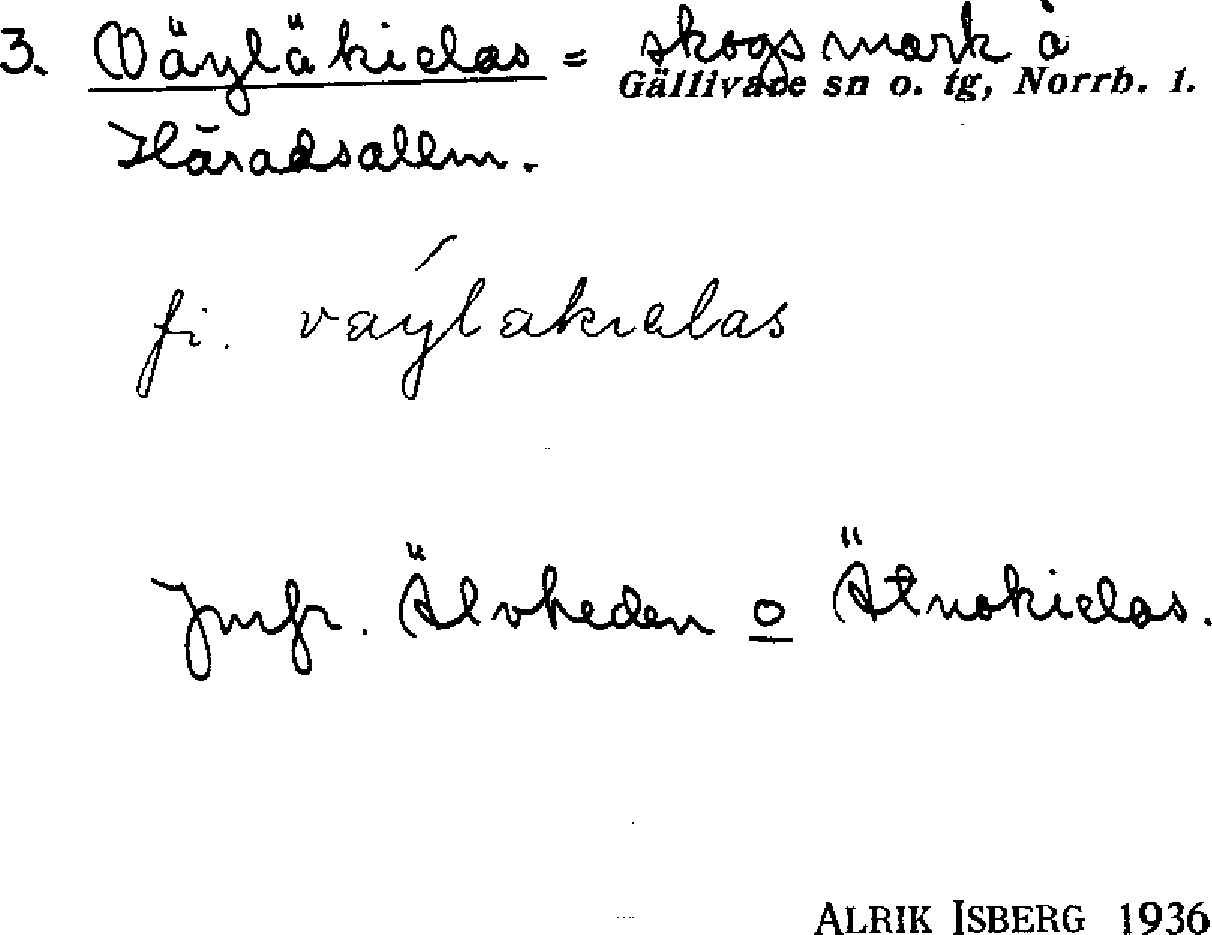 3. Väyläkielas = skogsmark å
Gällivare sn o. tg, Norrb. l.
Häradsallm.
fi. vaylakielas
Jmfr. Älvheden o Ätnokielas.
ALRIK ISBERG 1936